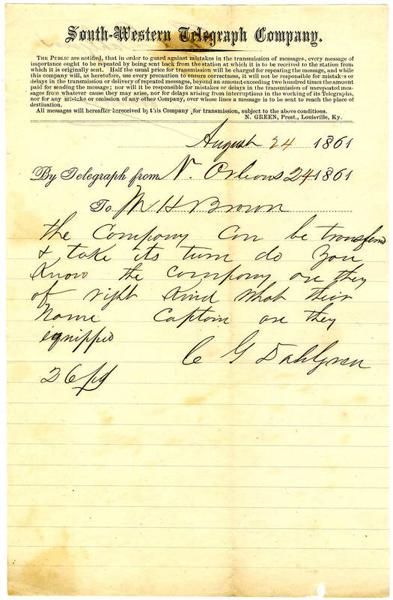 South-Western Telegraph Company.
THE PUBLIC are notified, that in order to guard against mistakes in the transmission of messages, every message of
importance ought to be repeated by being sent back from the station at which it is to be received to the station from
which it is originally sent. Half the usual price for transmission will be charged for repeating the message, and while
this company will, as heretofore, use every precaution to ensure correctness, it will not be responsible for mistakes or
delays in the transmission or delivery of repeated messages, beyond an amount exceeding two hundred times the amount
paid for sending the message; nor will it be responsible for mistakes or delays in the transmission of unrepeated messages
from whatever cause they may arise, nor for delays arising from interruptions in the working of its Telegraphs,
nor for any mistake or omission of any other Company, over whose lines a message is to be sent to reach the place of
destination.
All messages will hereafter be received by this Company for transmission, subject to the above conditions.
N. GREEN, Prest., Louisville, Ky.
August 24 1861
By Telegraph from N. Orleans 24 1861
To M H Brown
the Company can be transferd
& take its turn do you
know the company are they
of right kind what their
name Captain are they
equipped
C G Dahlgren
26 pd